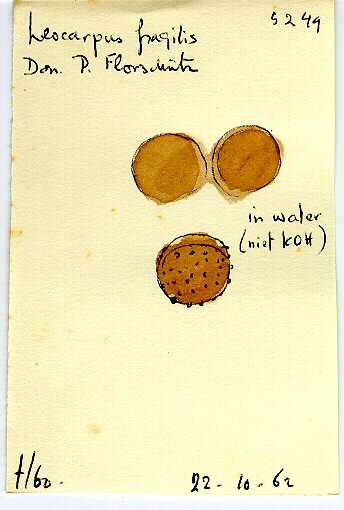 5249
Leocarpus fragilis
Don. P. Florschütz
in water
(niet KOH)
22-10-62